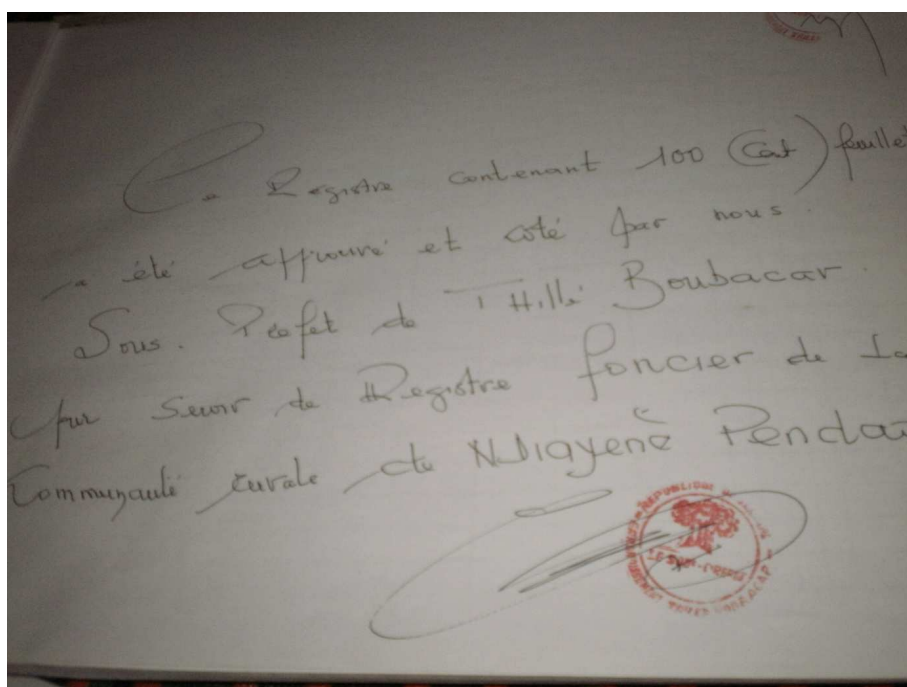 Ce Registre contenant 100 (Cent) feuillet
a été approuvé et coté par nous.
Sous. Préfet de THillé Boubacar.
pur Servir de Registre foncier de La
Communauté rurale de NDiayenè Pendao